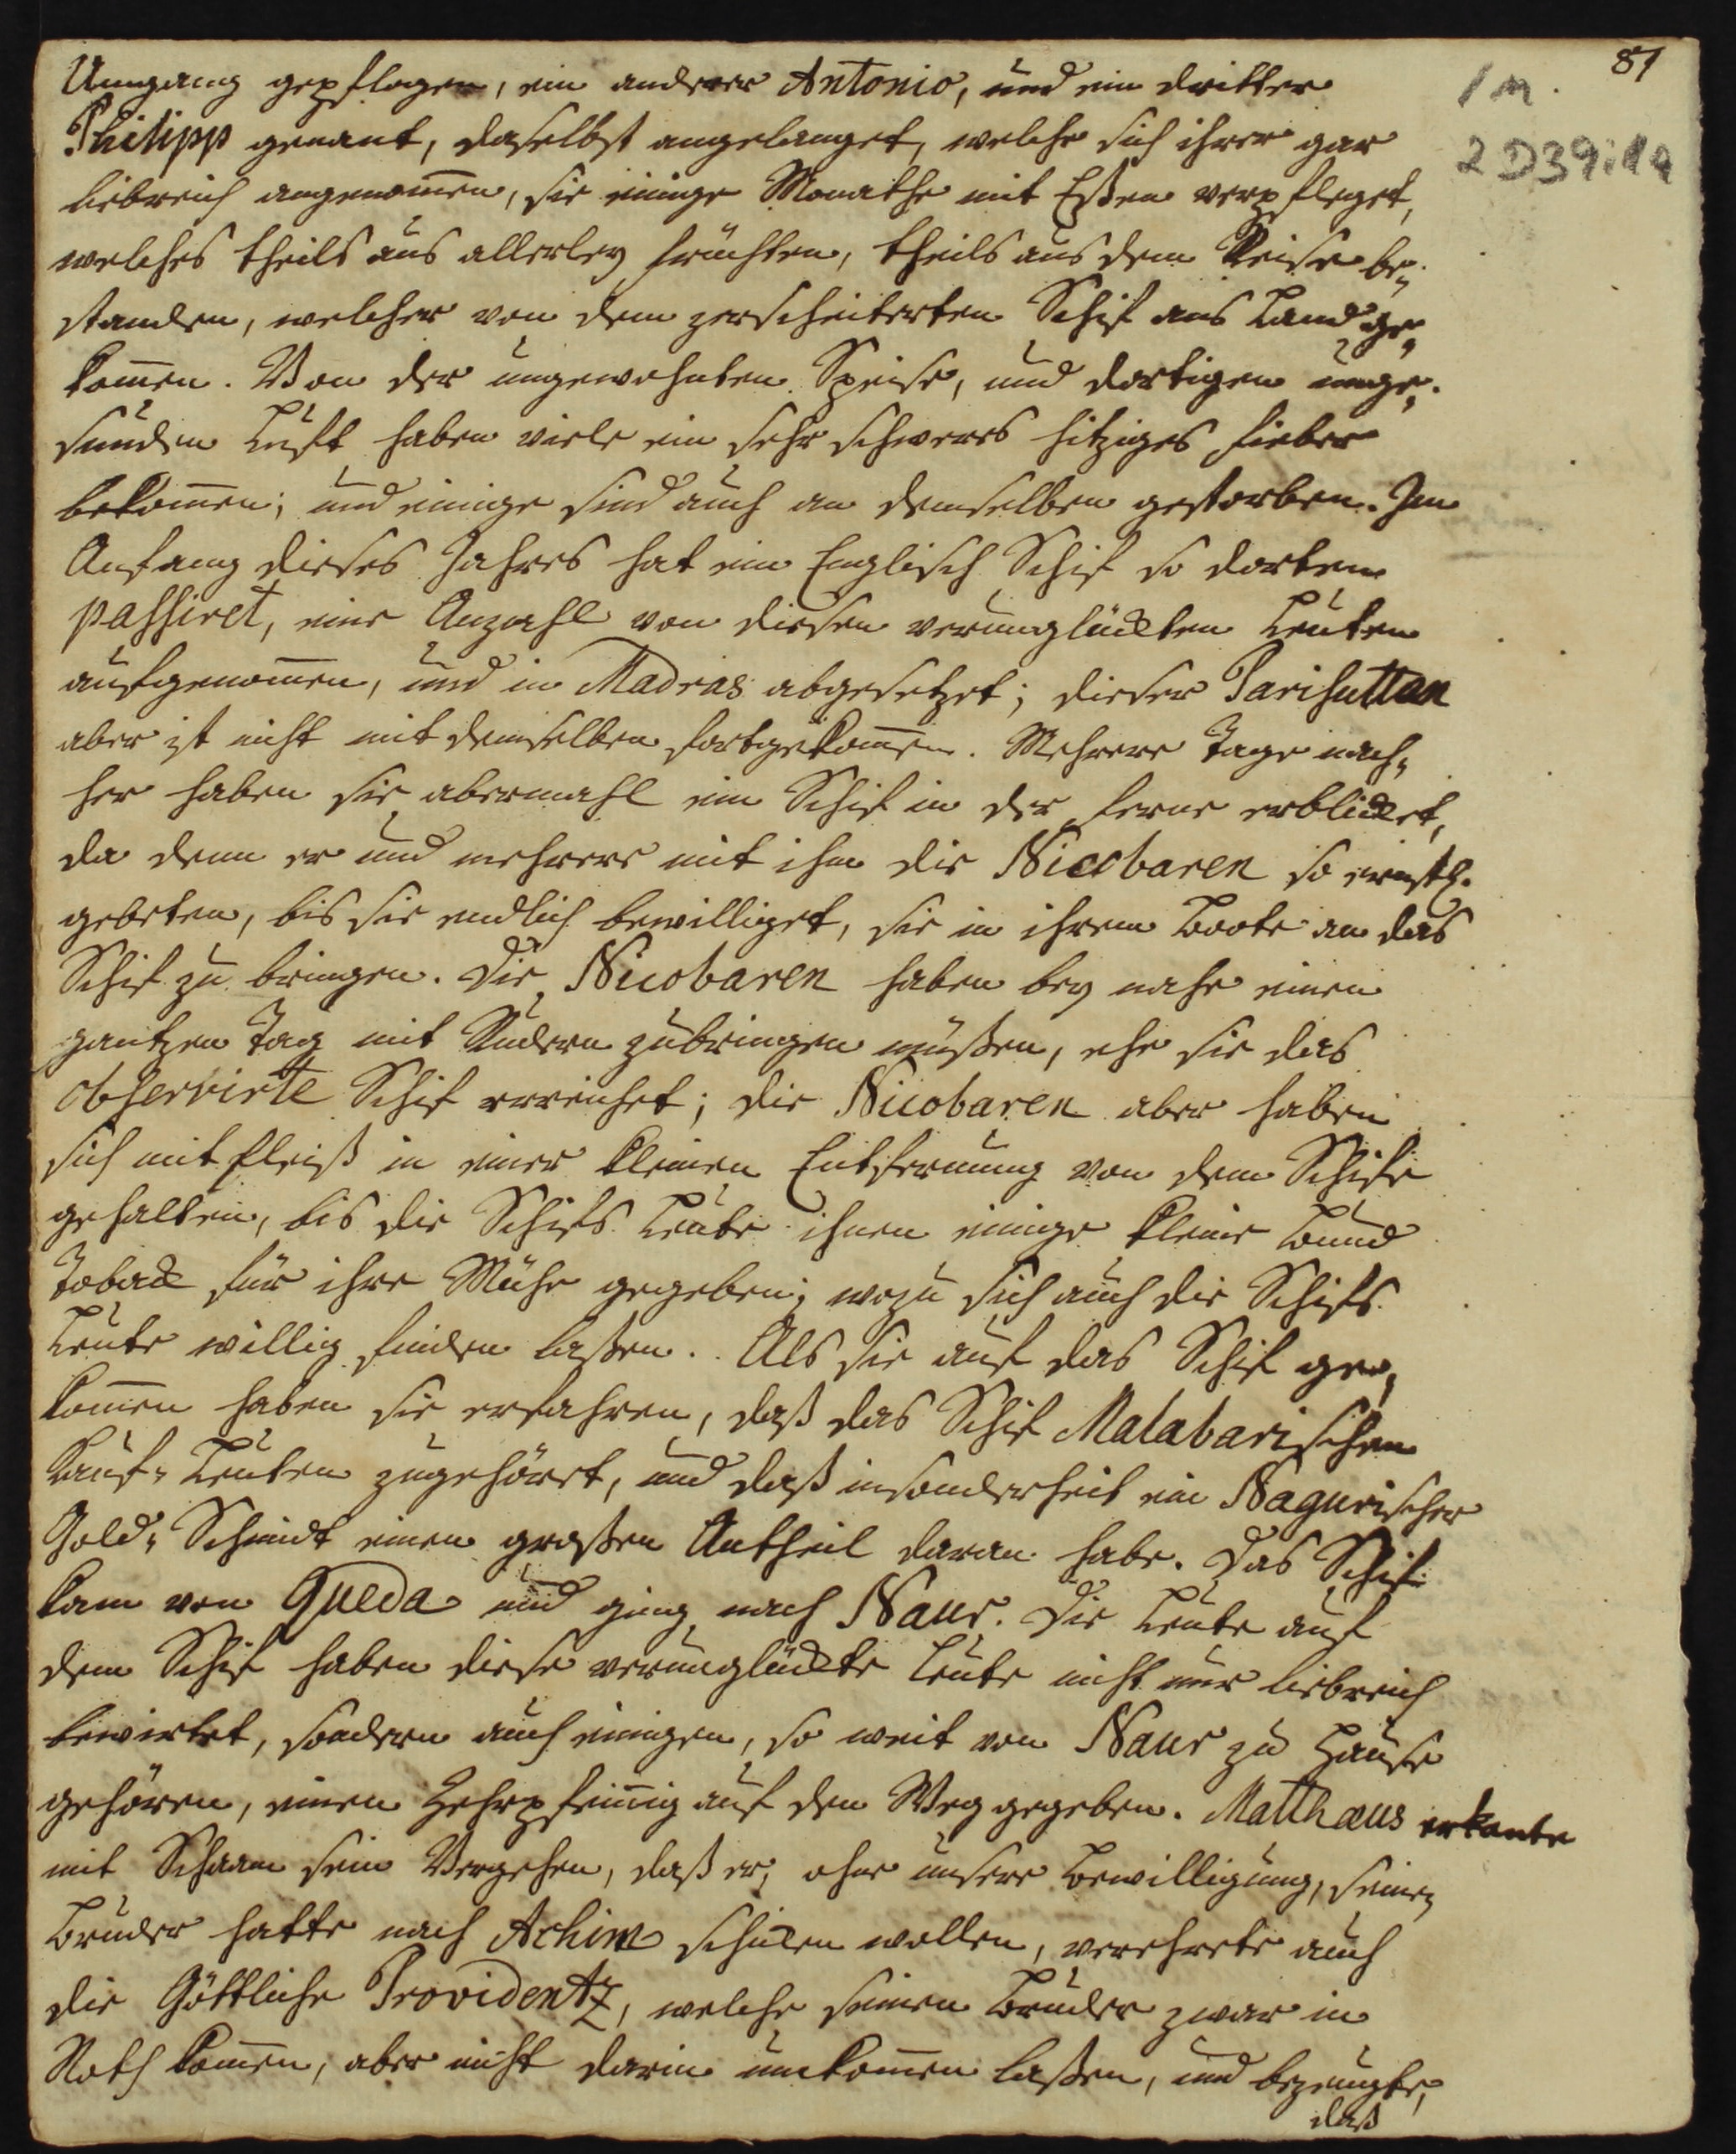 87
1 M.
2 D39:11a
Umgang gepflogen, ein anderer Antonio, und ein dritter
Philipp genant, daselbst angelanget, welche sich ihrer gar
liebreich angenom̄en, sie einige Monathe mit Eßen verpfleget,
welches theils aus allerley früchten, theils aus dem Reise be„
standen, welcher von dem zerscheiterten Schif ans Land ge„
kom̄en. Von der ungewohnten Speise, und dortigen unge„
sunden Luft haben viele ein sehr schweres hitziges fieber
bekom̄en; und einige sind auch an demselben gestorben. Im
Anfang dieses Jahres hat ein Englisch Schif so dorten
passiret, eine Anzahl von diesen verunglückten Leuten
aufgenom̄en, und in Madras abgesetzet; dieser Parisuttan
aber ist nicht mit demselben fortgekom̄en. Mehrere Tage nach„
her haben sie abermahl ein Schif in der ferne erblicket,
da denn er und mehrere mit ihm die Nicobaren so ernstl.
gebeten, bis sie endlich bewilliget, sie in ihrem Boote an das
Schif zu bringen. Die Nicobaren haben bey nahe einen
gantzen Tag mit Rudern zubringen müßen, ehe sie das
observirte Schif erreichet; die Nicobaren aber haben
sich mit fleiß in einer kleinen Entfernung von dem Schife
gehalten, bis die Schifs Leute ihnen einige kleine Bund
Toback für ihre Mühe gegeben; wozu sich auch die Schifs
Leute willig finden laßen. Als sie auf das Schif ge„
kom̄en haben sie erfahren, daß das Schif Malabarischen
Kauf„Leuten zugehöret, und daß insonderheit ein Nagurischer
Gold„Schmidt einen großen Antheil daran habe. Das Schif
kam von Queda und ging nach Naur. Die Leute auf
dem Schif haben diese verunglückte Leute nicht nur liebreich
bewirtet, sondern auch einigen, so weit von Naur zu Hause
gehören, einen Zehrpfennig auf den Weg gegeben. Matthæus erkante
mit Schaam sein Vergehen, daß er, ohne unsere Bewilligung, seinen
Bruder hatte nach Achim schicken wollen, verehrete auch
die Göttliche Providentz, welche seinen Bruder zwar in
Noth kom̄en, aber nicht darin umkom̄en laßen, und bezeugte,
daß